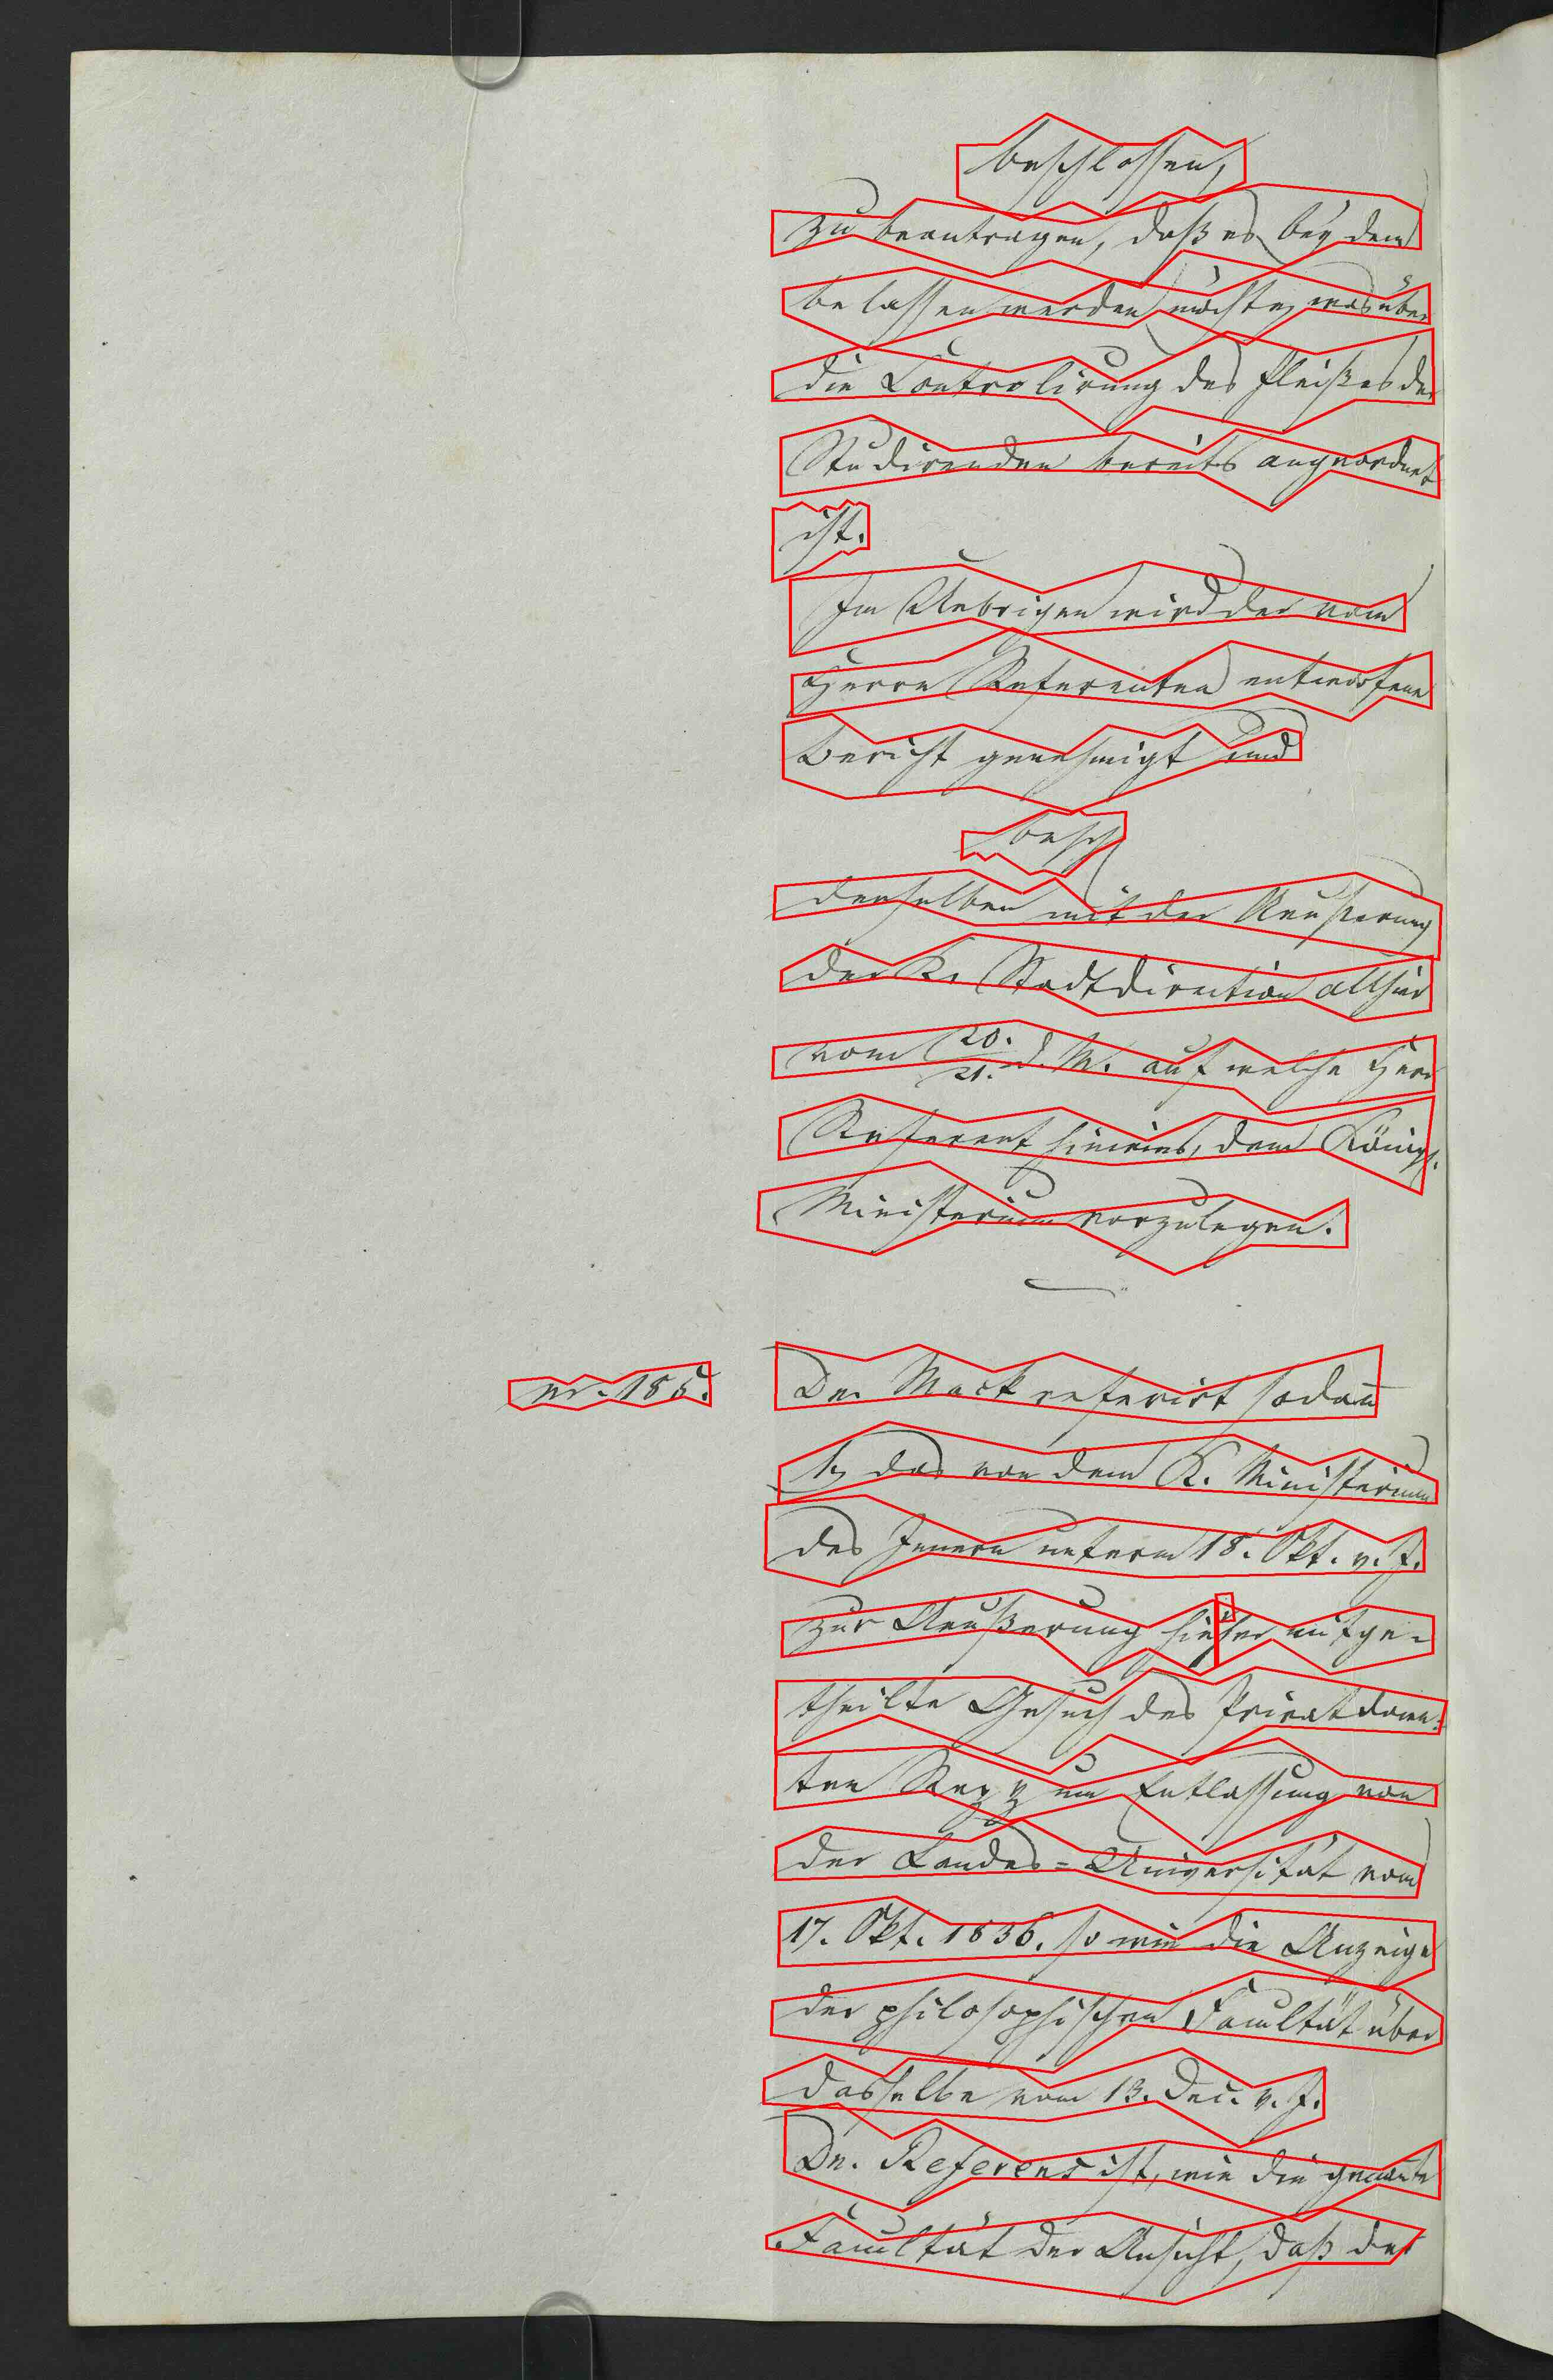 beschlossen,
zu beantragen, daß es bey dem
belassen werden möchte, was über
die Controlirung des Fleißes der
Studirenden bereits angeordnet
ist.
Im Uebrigen wird der vom
Herrn Referenten entworfene
Bericht genehmigt und
besch
denselben mit der Aeußerung
der K. Stadtdirection allhier
vom 20./21. d. M. auf welche Herr
Referent hinwies, dem Königl.
Ministerium vorzulegen.
nr. 185.
Dn. Mack referirt sodann
1, das von dem K. Ministerium
des Innern unterm 18. Okt. v. J.
zur Aeußerung hieher mitge-
theilte Gesuch des Privatdocen-
ten Rey um Entlassung von
der Landes-Universität vom
17. Okt. 1836. so wie die Anzeige
der philosophischen Facultät über
dasselbe vom 13. Dec. v. J.
Dn. Referens ist, wie die genannte
Facultät der Ansicht, daß der